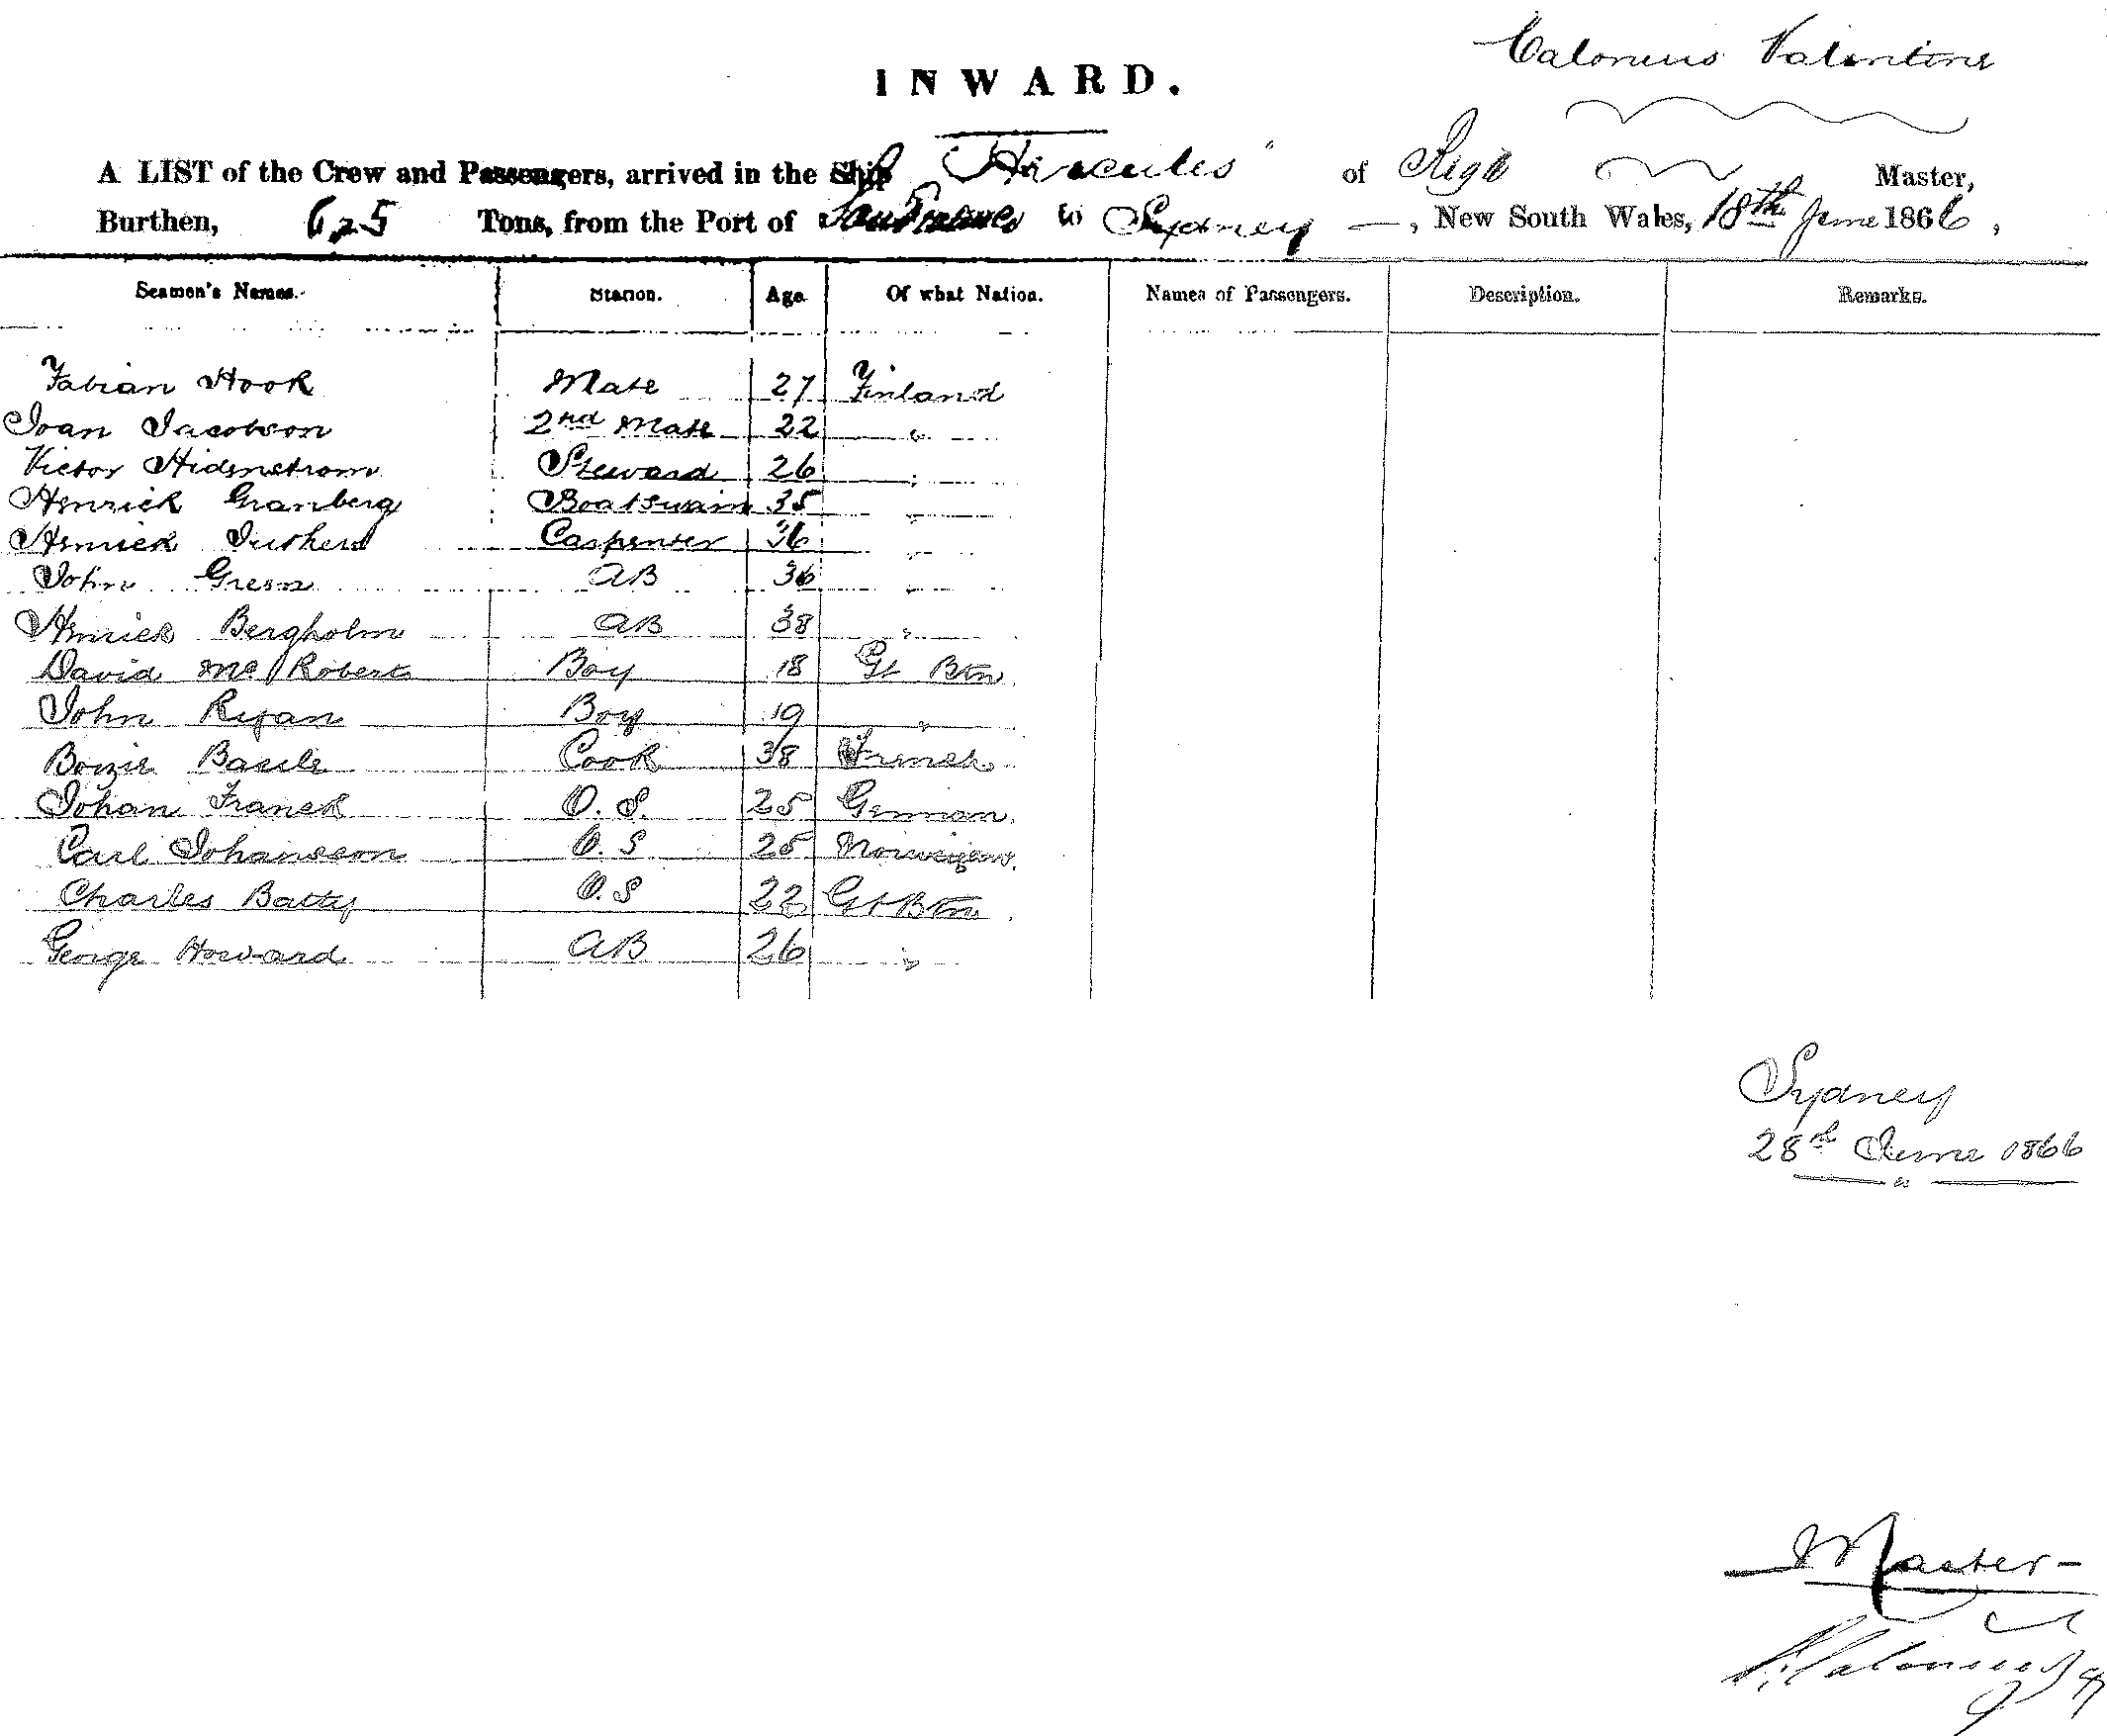 Calonius Valentine
INWARD.
A LIST of the Crew and Passengers, arrived in the Ship "Hercules" of Riga Master,
Burthen, 625 Tons, from the Port of San to Sydney —, New South Wales, 18th June 1866,
Seamen's Names. Station. Age Of what Nation. Names of Passengers. Description. Remarks.
Fabian Hook Mate 27 Finland
Joan Jacobson 2nd Mate 22 "
Victor Hidenstrom Steward 26 "
Henrick Granberg Boatswain 35 "
Henrick Carpenter 36 "
John Green AB 36 "
Henrick Bergholm AB 38 "
David McRoberts Boy 18 Gt Btn
John Ryan Boy 19 "
Bozie Basile Cook 38 French
Johan Franck O.S. 25 German
Carl Johansson O.S 25 Norwegian
Charles Batty O.S 22 Gt Btn
George Howard AB 26 "
Sydney
28th June 1866
Master